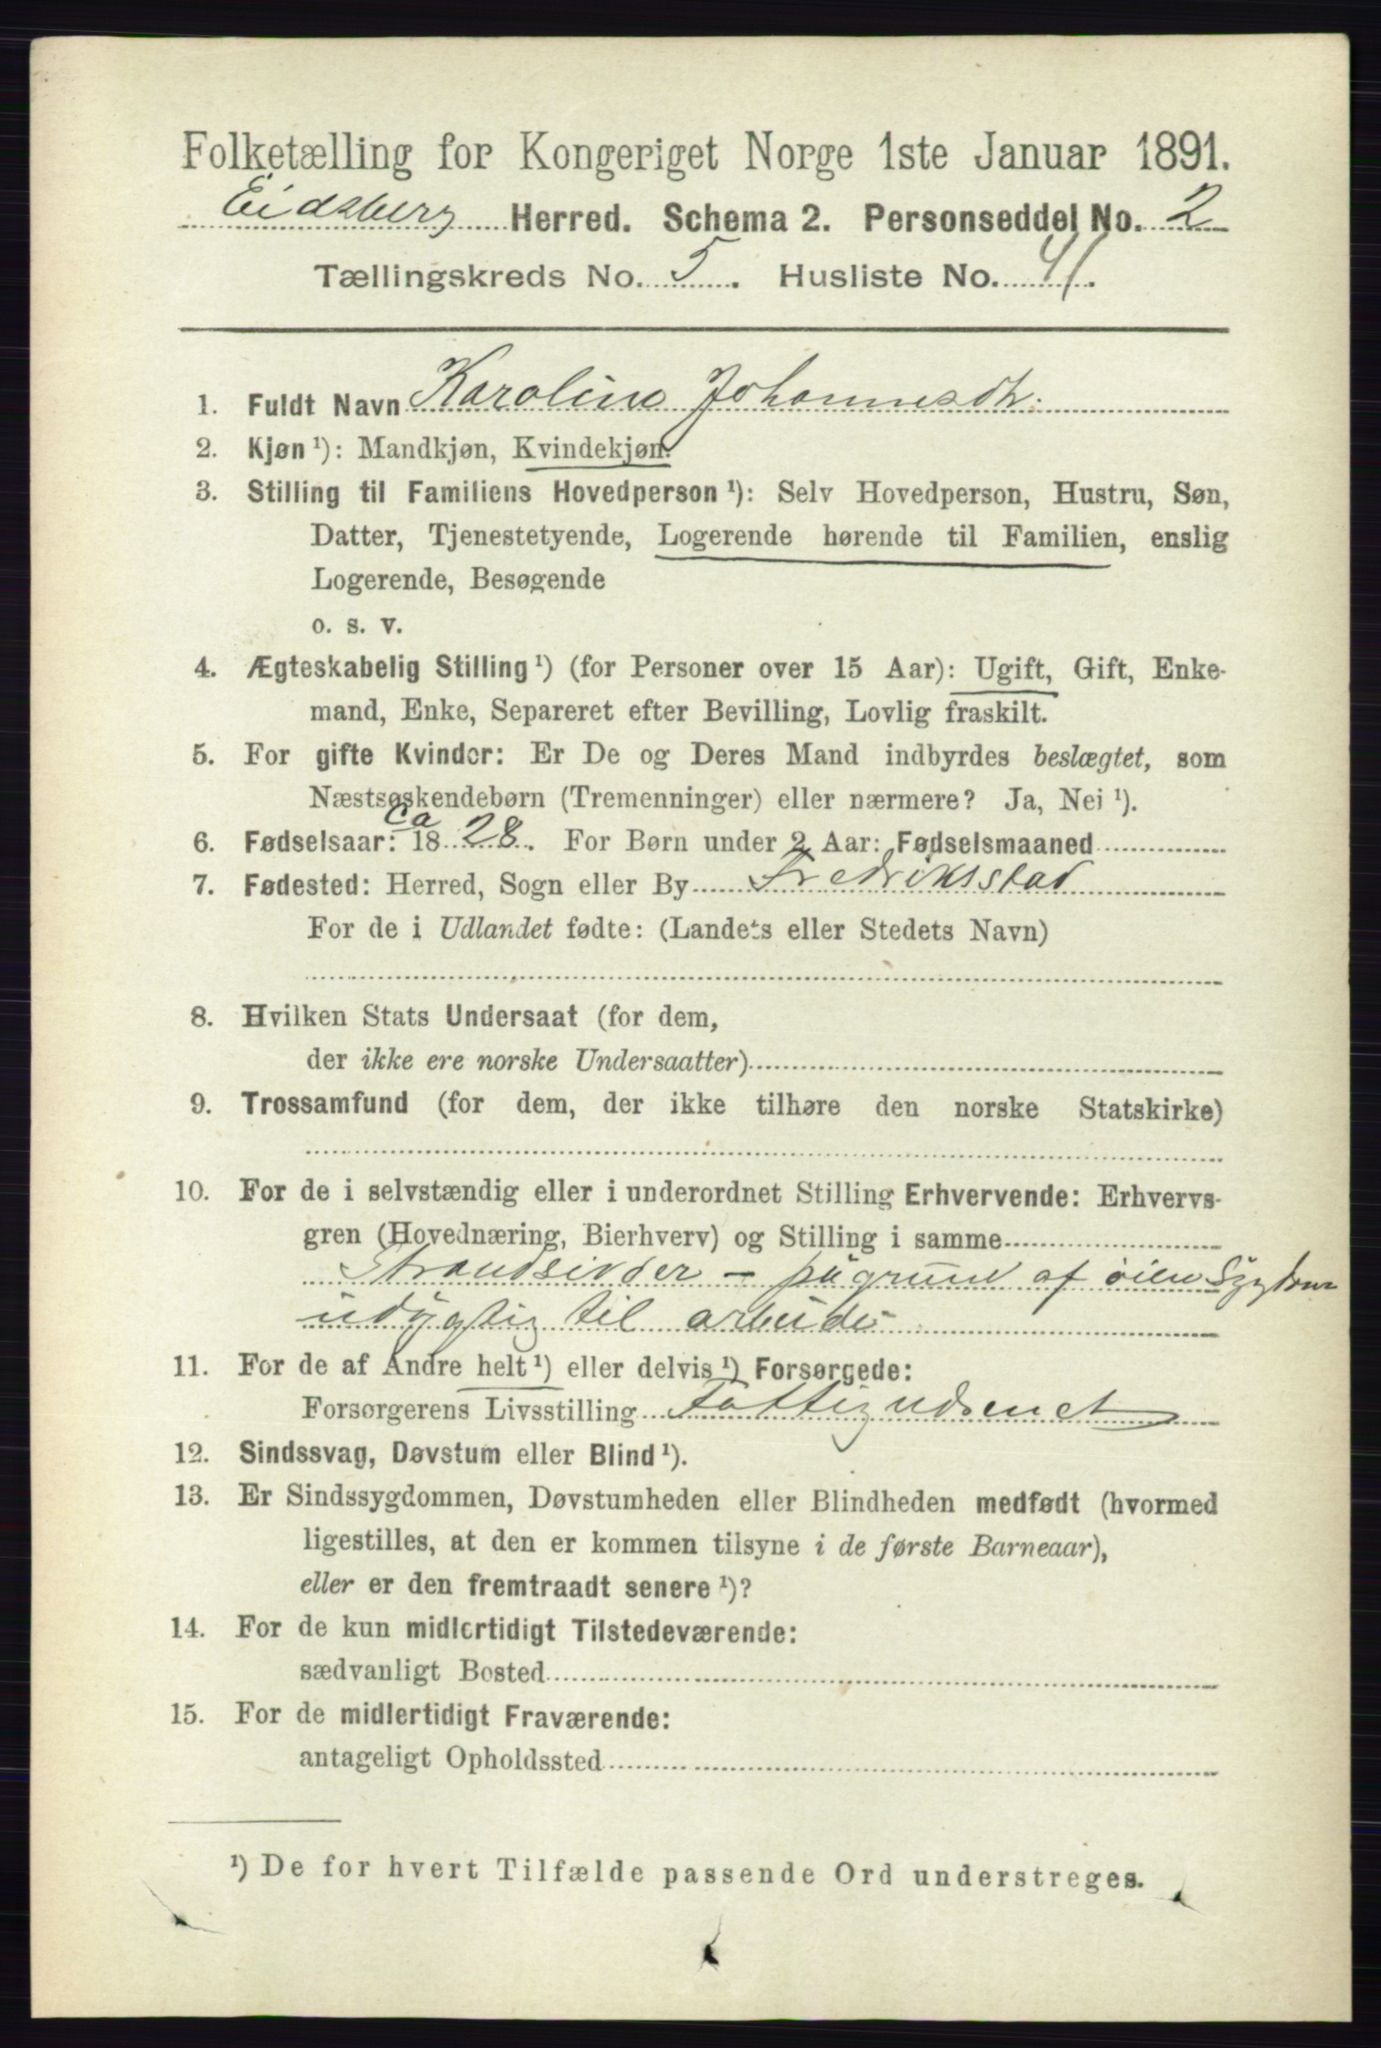 Folketælling for Kongeriget Norge 1ste Januar 1891.
Eidsberg Herred. Schema 2. Personseddel No. 2
Tællingskreds No. 5. Husliste No. 41.
1. Fuldt Navn Karoline Johannesdtr.
2. Kjøn ¹): Mandkjøn, Kvindekjøn.
3. Stilling til Familiens Hovedperson ¹): Selv Hovedperson, Hustru, Søn,
Datter, Tjenestetyende, Logerende hørende til Familien, enslig
Logerende, Besøgende
o. s. v.
4. Ægteskabelig Stilling ¹) (for Personer over 15 Aar): Ugift, Gift, Enke-
mand, Enke, Separeret efter Bevilling, Lovlig fraskilt.
5. For gifte Kvinder: Er De og Deres Mand indbyrdes beslægtet, som
Næstsøskendebørn (Tremenninger) eller nærmere? Ja, Nei ¹).
6. Fødselsaar: ca 1828. For Børn under 2 Aar: Fødselsmaaned
7. Fødested: Herred, Sogn eller By Fredriksstad
For de i Udlandet fødte: (Landets eller Stedets Navn)
8. Hvilken Stats Undersaat (for dem,
der ikke ere norske Undersaatter)
9. Trossamfund (for dem, der ikke tilhøre den norske Statskirke)
10. For de i selvstændig eller i underordnet Stilling Erhvervende: Erhvervs-
gren (Hovednæring, Bierhverv) og Stilling i samme
Strandsidder - på grund af øien
udygtig til arbeide
11. For de af Andre helt ¹) eller delvis ¹) Forsørgede:
Forsørgerens Livsstilling Fattigvæsenet
12. Sindssvag, Døvstum eller Blind ¹).
13. Er Sindssygdommen, Døvstumheden eller Blindheden medfødt (hvormed
ligestilles, at den er kommen tilsyne i de første Barneaar),
eller er den fremtraadt senere ¹)?
14. For de kun midlertidigt Tilstedeværende:
sædvanligt Bosted
15. For de midlertidigt Fraværende:
antageligt Opholdssted
¹) De for hvert Tilfælde passende Ord understreges.